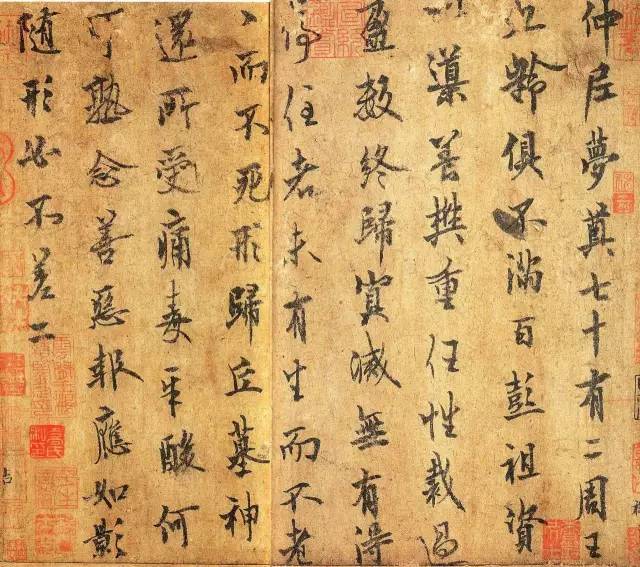 仲尼夢奠七十有二周王
九齡俱不滿百彭祖資
導養樊重任性裁過
盈數終歸冥滅無有得
停住者未有生而不老
〻而不死形歸丘墓神
還所受痛毒辛酸何
可熟念善惡報應如影
隨形必不差二